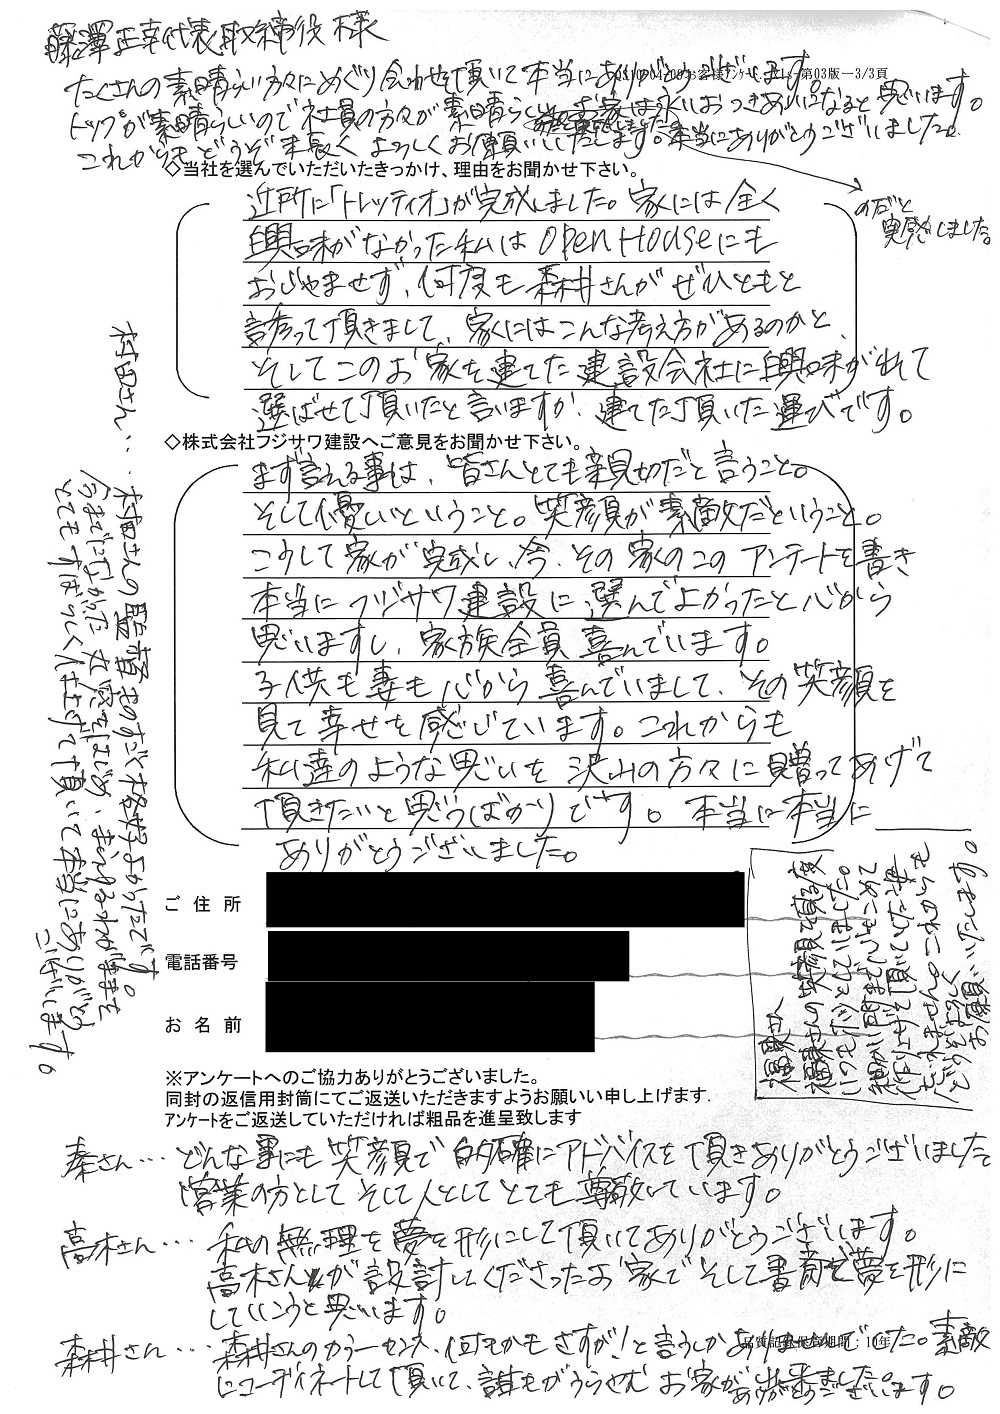 藤澤正幸代表取締役様
たくさんの素晴らしい方々にめぐり合わせて頂いて本当にありがとうございます。
トップが素晴らしいので社員の方々が素晴らしい お家は永いおつきあいになると思います。
これからもどうぞ末長くよろしくお願いいたします。本当にありがとうございました。
のだと
実感しました。
第03版－3/3頁
◇当社を選んでいただいたきっかけ、理由をお聞かせ下さい。
近所に「トレッティオ」が完成しました。家には全く
興味がなかった私はOpen Houseにも
おじゃませず、何度も森井さんがぜひともと
誘って頂きまして、家にはこんな考え方があるのかと、
そしてこのお家を建てた建設会社に興味がわれて
選ばせて頂いたと言いますか、建てた頂いた運びです。
◇株式会社フジサワ建設へご意見をお聞かせ下さい。
まず言える事は、皆さんとても親切だと言うこと。
そして優しいということ。笑顔が素敵だということ。
こうして家が完成し、今、その家のこのアンケートを書き
本当にフジサワ建設に選んでよかったと心から
思いますし、家族全員喜んでいます。
子供も妻も心から喜んでいまして、その笑顔を
見て幸せを感じています。これからも
私達のような思いを沢山の方々に贈ってあげて
頂きたいと思うばかりです。本当に本当に
ありがとうございました。
村田さん… 村田さんの監督ものすごく格好よかったです。
今までになかった 大変 はじめ、まわりのわがままを
とてもすばらしく仕上げて頂いて本当にありがとう
ございます。
ご住所
電話番号
お名前
福泉さん
福泉さんの笑顔を見る度
いつもホッとしていました。
細かい所まで
作り上げて頂いて
お願いいたします。
※アンケートへのご協力ありがとうございました。
同封の返信用封筒にてご返送いただきますようお願いい申し上げます.
アンケートをご返送していただければ粗品を進呈致します
秦さん… どんな事にも笑顔で的確にアドバイスを頂きありがとうございました
営業の方として そして人としてとても尊敬しています。
高木さん… 私の無理を夢を形にして頂いてありがとうございます。
高木さんが設計してくださったお家で そして書斎で夢を形に
していこうと思います。
森井さん… 森井さんのカラーセンス、何もかもさすが！と言うしかありませんでした。素敵
にコーディネートして頂いて、誰もがうらやむお家が出来ました。
ありがとうございます。
：10年